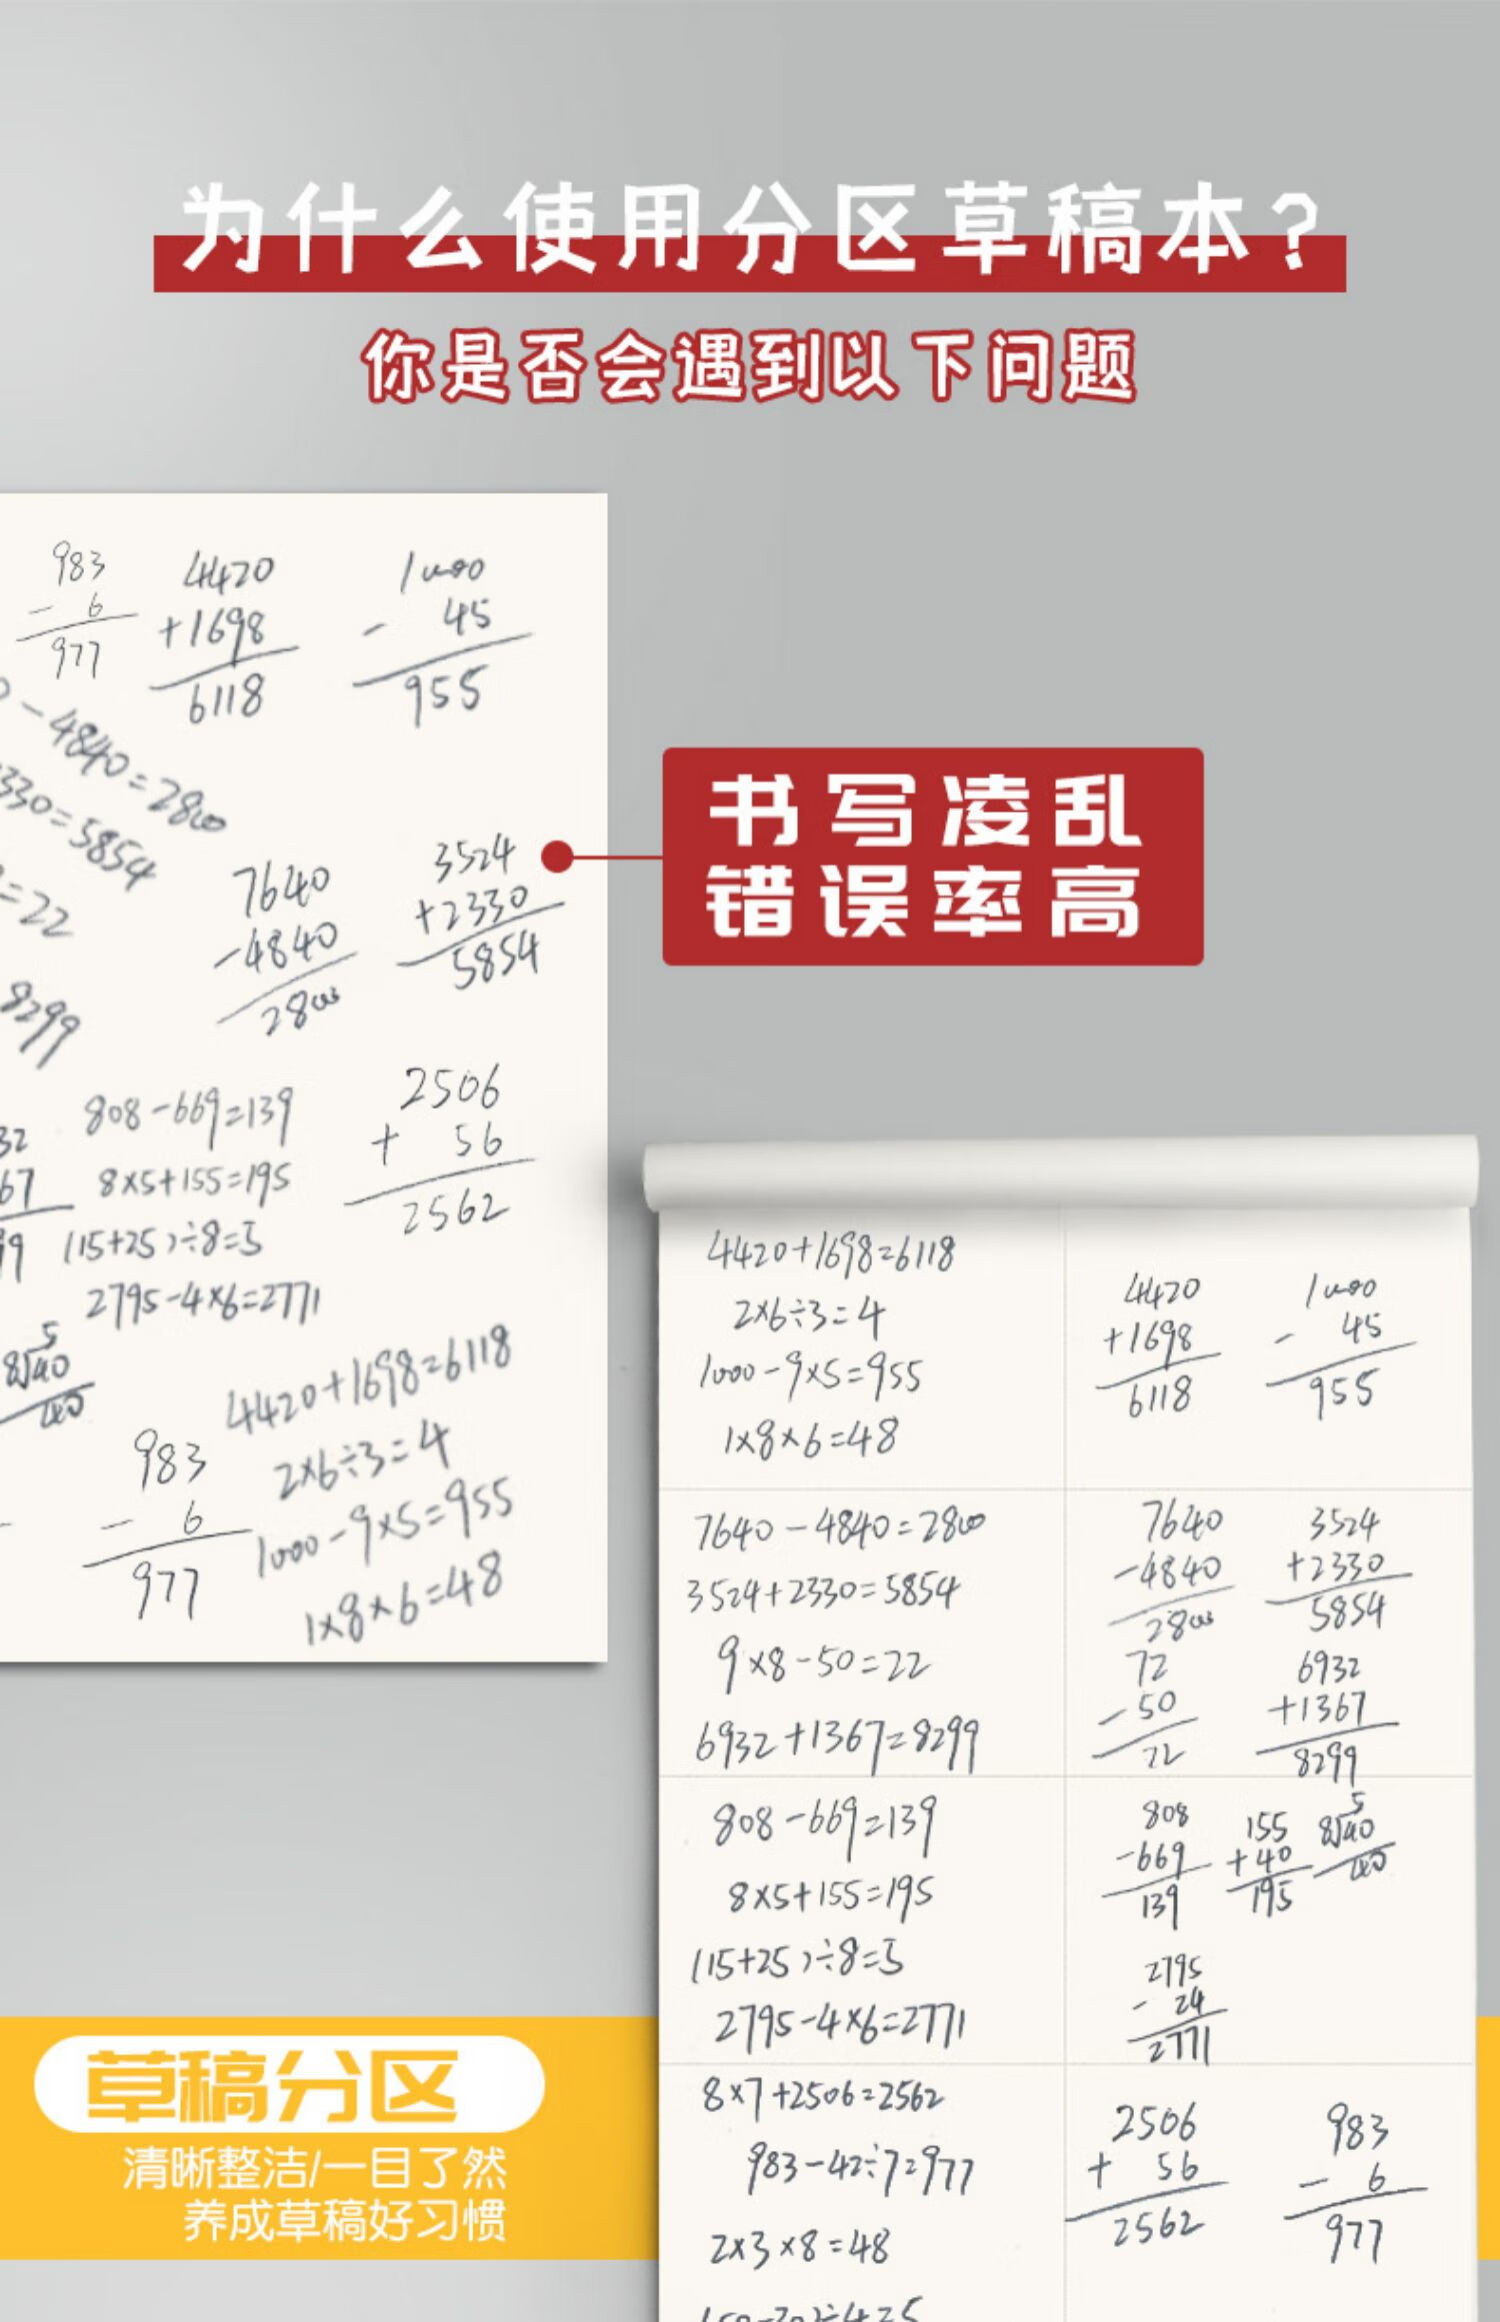 为什么使用分区草稿本?
你是否会遇到以下问题
983
- 6
977
4420
+1698
6118
1000
- 45
955
- 4840=2800
330=5854
=22
8299
7640
-4840
2800
3524
+2330
5854
书写凌乱
错误率高
808-669=139
8×5+155=195
(15+25)÷8=5
2795-4×6=2771
32
67
99
2506
+ 56
2562
5
8√40
40
983
- 6
977
4420+1698=6118
2×6÷3=4
1000-9×5=955
1×8×6=48
4420+1698=6118
2×6÷3=4
1000-9×5=955
1×8×6=48
4420
+1698
6118
1000
- 45
955
7640-4840=2800
3524+2330=5854
9×8-50=22
6932+1367=8299
7640
-4840
2800
3524
+2330
5854
72
-50
22
6932
+1367
8299
808-669=139
8×5+155=195
(15+25)÷8=5
2795-4×6=2771
808
-669
139
155
+40
195
5
8√40
40
2795
- 24
2771
8×7+2506=2562
983-42÷7=977
2×3×8=48
2506
+ 56
2562
983
- 6
977
草稿分区
清晰整洁/一目了然
养成草稿好习惯